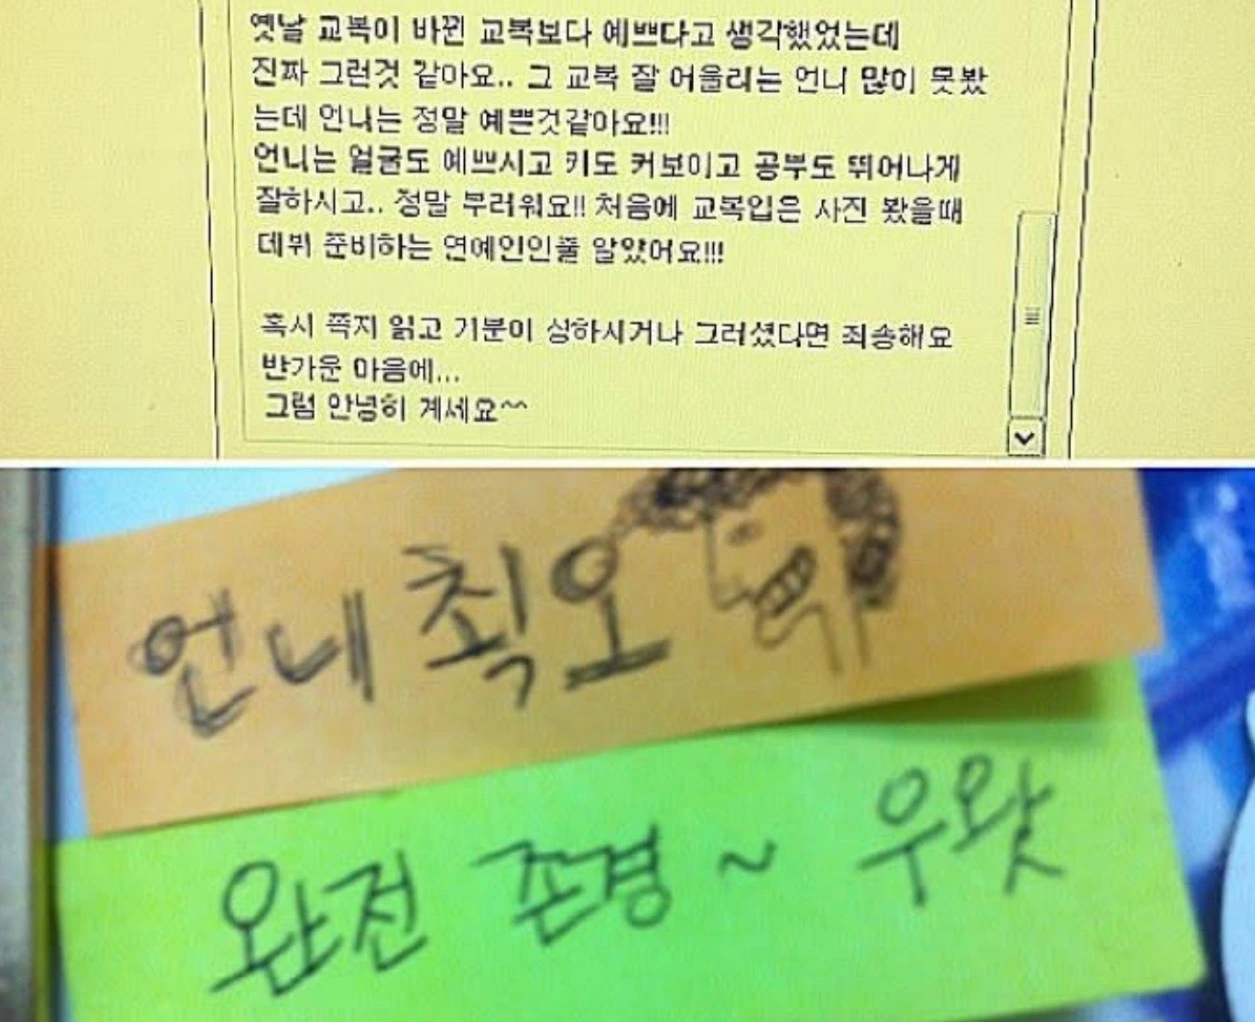 옛날 교복이 바뀐 교복보다 예쁘다고 생각했었는데
진짜 그런것 같아요.. 그 교복 잘 어울리는 언니 많이 못봤
는데 언니는 정말 예쁜것같아요!!!
언니는 얼굴도 예쁘시고 키도 커보이고 공부도 뛰어나게
잘하시고.. 정말 부러워요!! 처음에 교복입은 사진 봤을때
데뷔 준비하는 연예인인줄 알았어요!!!
혹시 쪽지 읽고 기분이 상하시거나 그러셨다면 죄송해요
반가운 마음에...
그럼 안녕히 계세요^^
언니 최오
완전 존경~ 우왓